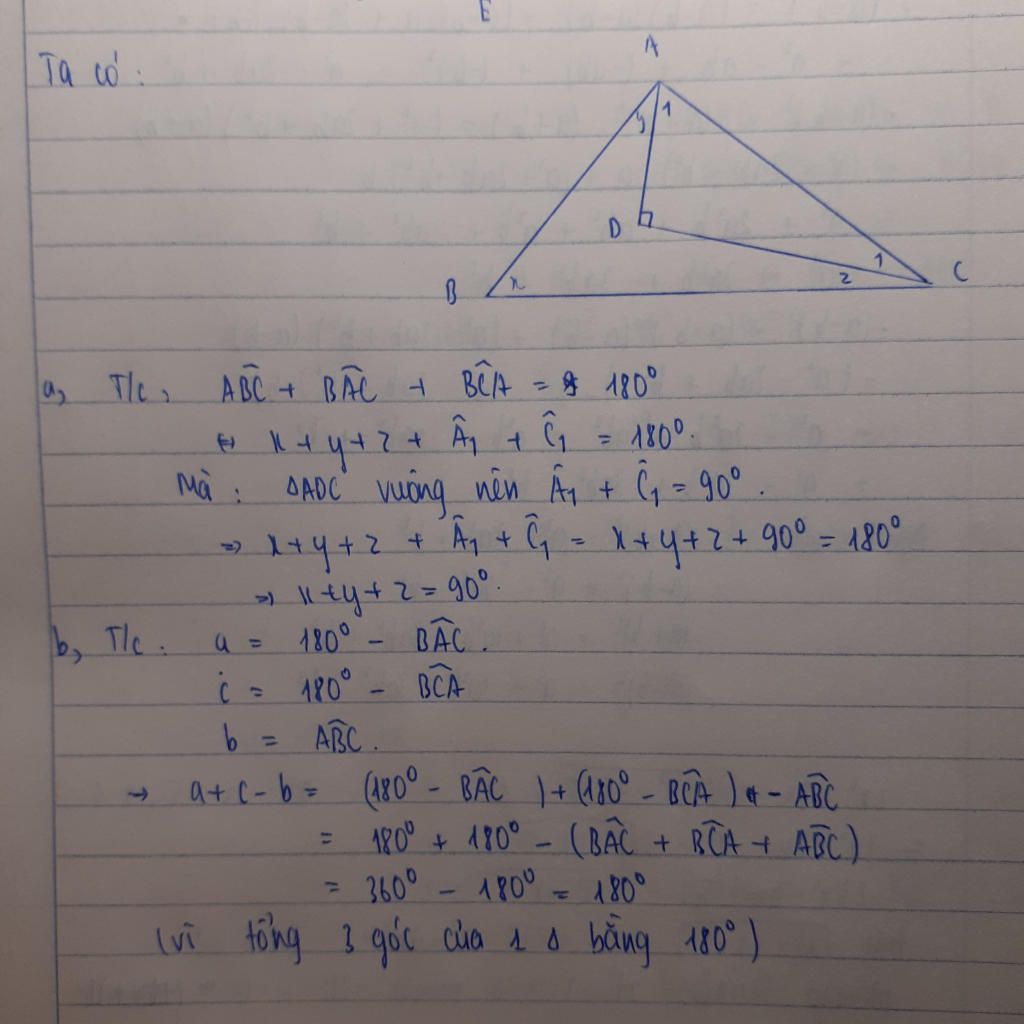 E
Ta có :
A
y 1
D
B x 2 1 C
a, T/c, ABC^ + BAC^ + BCA^ = 180°
⇔ x + y + z + Â1 + Ĉ1 = 180°.
Mà : ΔADC vuông nên Â1 + Ĉ1 = 90°.
⇒ x+y+z + Â1 + Ĉ1 = x+y+z + 90° = 180°
⇒ x+y+z = 90°.
b, T/c : a = 180° - BAC^.
c = 180° - BCA^
b = ABC^.
→ a+c-b = (180° - BAC^) + (180° - BCA^) - ABC^
= 180° + 180° - (BAC^ + BCA^ + ABC^)
= 360° - 180° = 180°
(vì tổng 3 góc của 1 Δ bằng 180°)